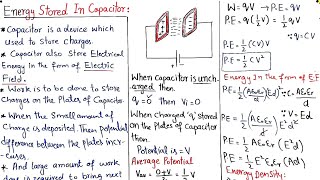 Energy Stored In Capacitor:
•Capacitor is a device which
used to store charges.
• Capacitor also store Electrical
Energy in the form of Electric
Field.
•Work is to be done to store
Charges on the Plates of Capacitor.
•When the Small amount of
Charge is deposited. Then potential
difference between the Plates incr-
eases.
• And large amount of work
done is required to bring next
When Capacitor is unch-
arged then.
q = 0 then Vi = 0
When charged 'q' stored
on the plates of Capacitor
then.
Potential is = V
Average Potential
Vav = 0+V/2 = 1/2 V
W = qV → P.E = qV
P.E = q(1/2 V) = 1/2 qV
P.E = 1/2 (CV) V
P.E = 1/2 CV²
Energy In the form of E.F
∵ V = Ed
Energy Density: